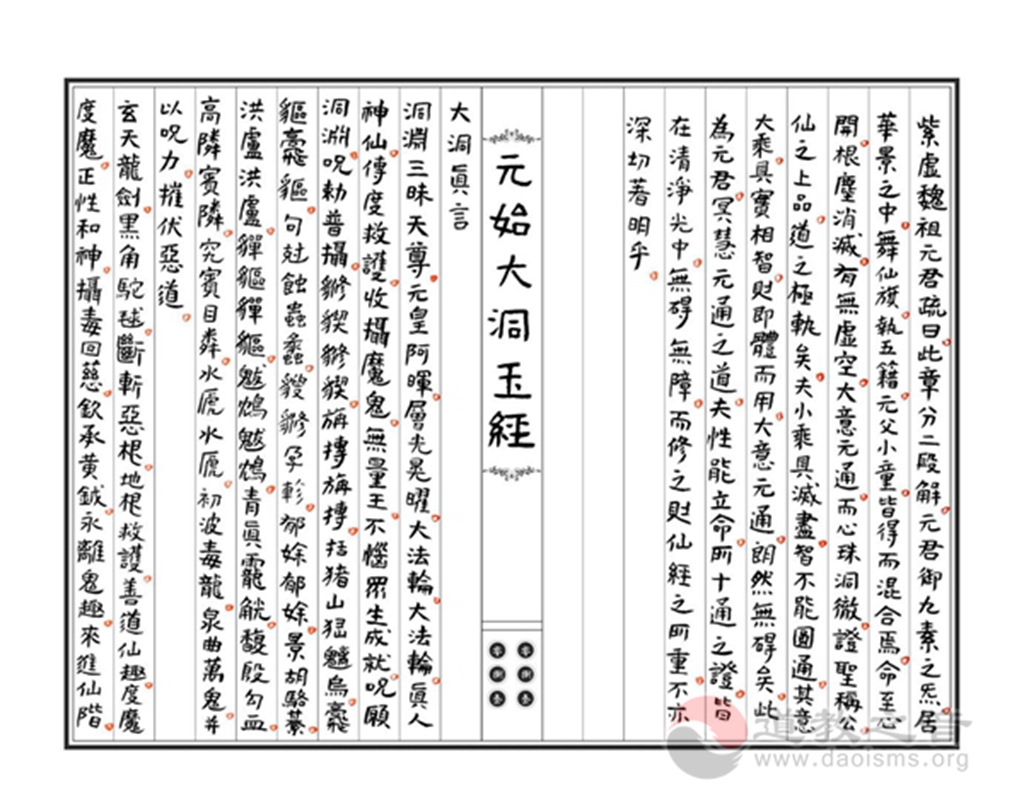 紫虛魏祖元君疏曰此章分二段解元君御九素之炁居
華景之中舞仙旗執五籍元父小童皆得而混合焉命至心
開根塵消滅有無虛空大意元通而心珠洞徹證聖稱公
仙之上品道之極軌矣夫小乘具滅盡智不能圓通其意
大乘具實相智則即體而用大意元通朗然無碍矣此
為元君冥慧元通之道夫性能立命所十通之證皆
在清淨光中無碍無障而修之則仙經之所重不亦
深切著明乎
元始大洞玉經
大洞眞言
洞淵三昧天尊元皇阿暉層光晃曜大法輪大法輪眞人
神仙傳度救護收攝魔鬼無量王不惱眾生成就呪願
洞淵呪勅普攝貅貅旃摶旃摶括猪山猛魑烏
句蝕蟲孕軫郁嵞郁嵞景胡駱
洪盧洪盧青眞馥殷勾
高隣賓隣究賓目粦水虒水虒初波毒龍泉曲萬鬼并
以呪力摧伏惡道
玄天龍劍黑角駝毬斷斬惡根地根救護善道仙趣度魔
度魔正性和神攝毒回慈欽承黃鉞永離鬼趣來進仙階
道教之音
www.daoisms.org